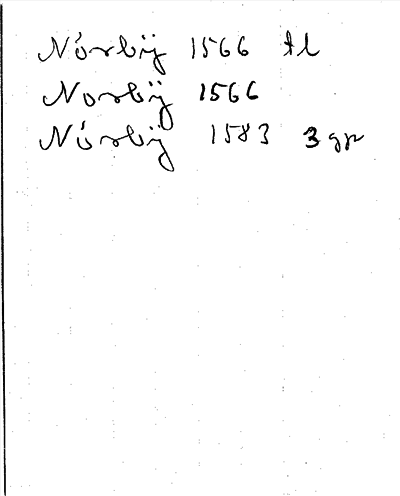 Nórbÿ 1566 Al
Norbÿ 1566
Nórbÿ 1583 3 ggr